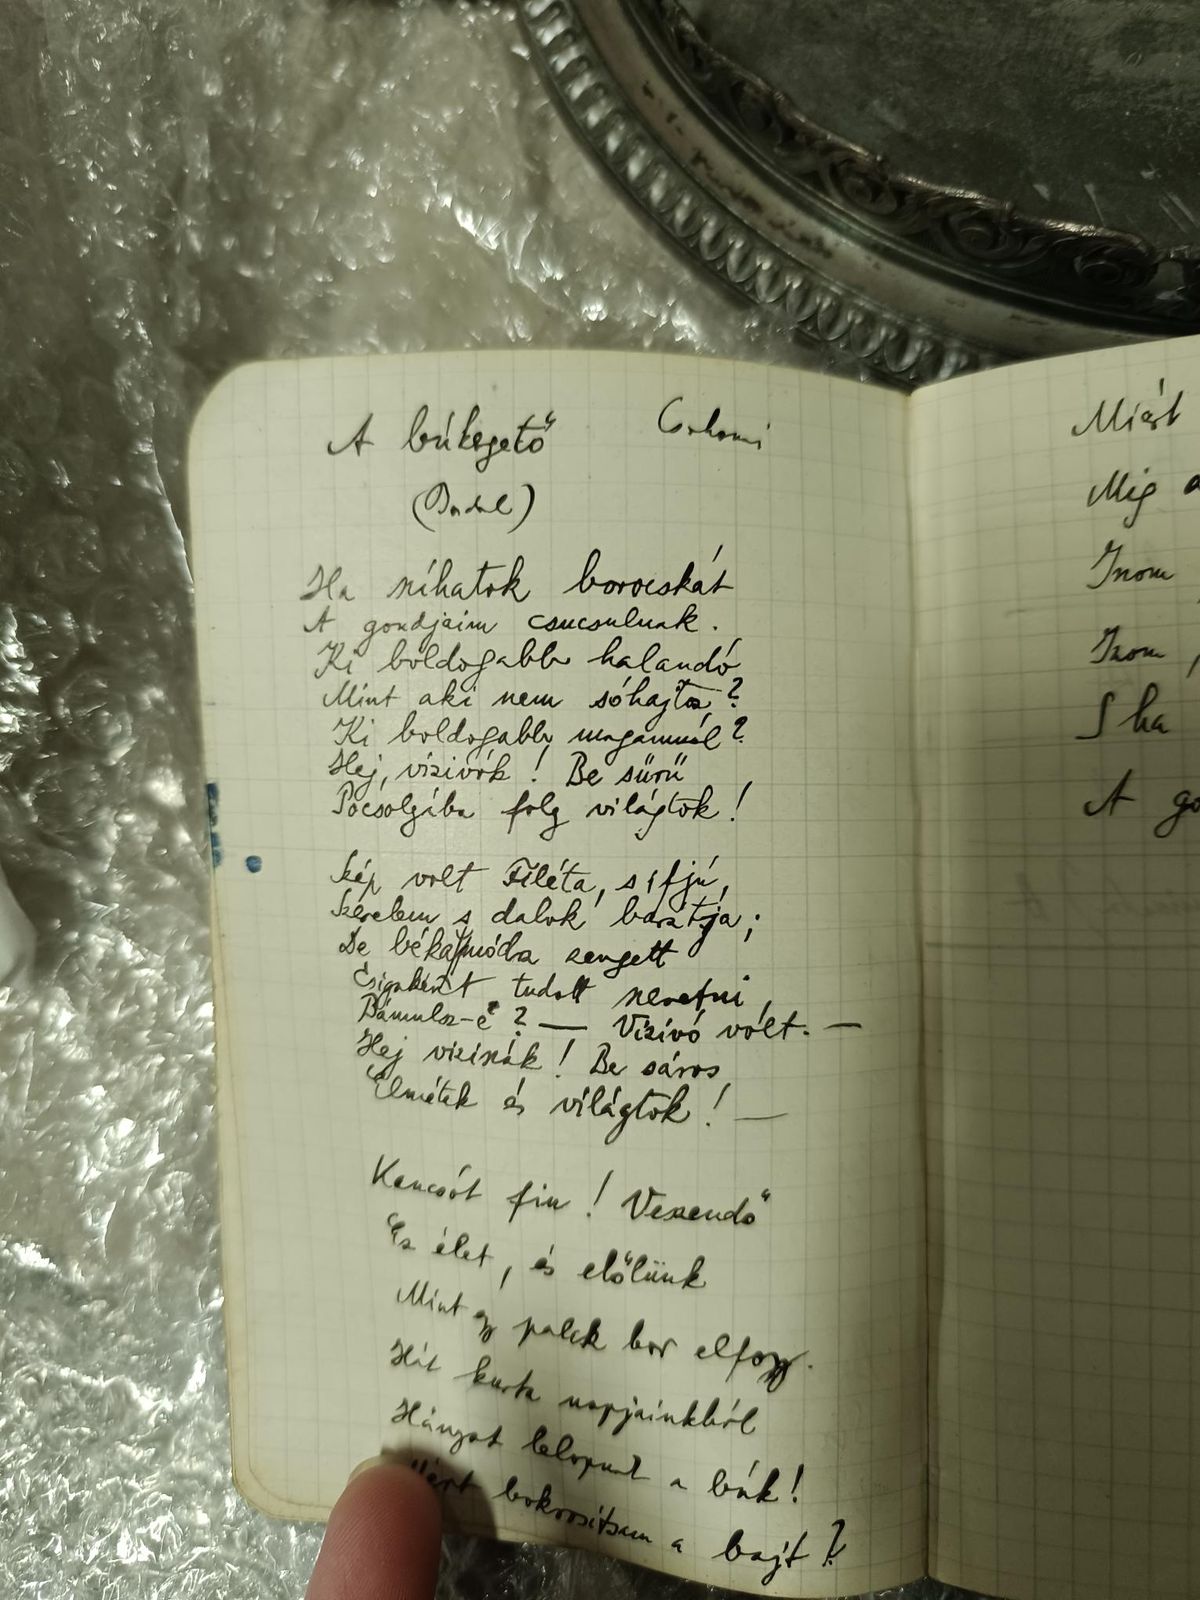 A búkergető Csokonai
(Bordal)
Ha síhatok borocskát
A gondjaim csucsulnak.
Ki boldogabb halandó
Mint aki nem sóhajtoz?
Ki boldogabb magamnál?
Hej, vizivók! Be sűrű
Pocsolyába foly világtok!
Szép volt Filéta, s ifjú,
Szerelem s dalok barátja;
De béka módra zengett
Csigaként tudott szeretni,
Bámulsz-e? — Vizivó vólt. —
Hej vizivók! Be sáros
Elmétek és világtok! —
Kancsót fiu! Veszendő
Ez élet, és előlünk
Mint egy palack bor elfogy.
Hát kurta napjainkból
Hányat lelopnat a búk!
Mért bokrosítsam a bajt?
Miért
Míg a
Inom
Iszom,
S ha
A go